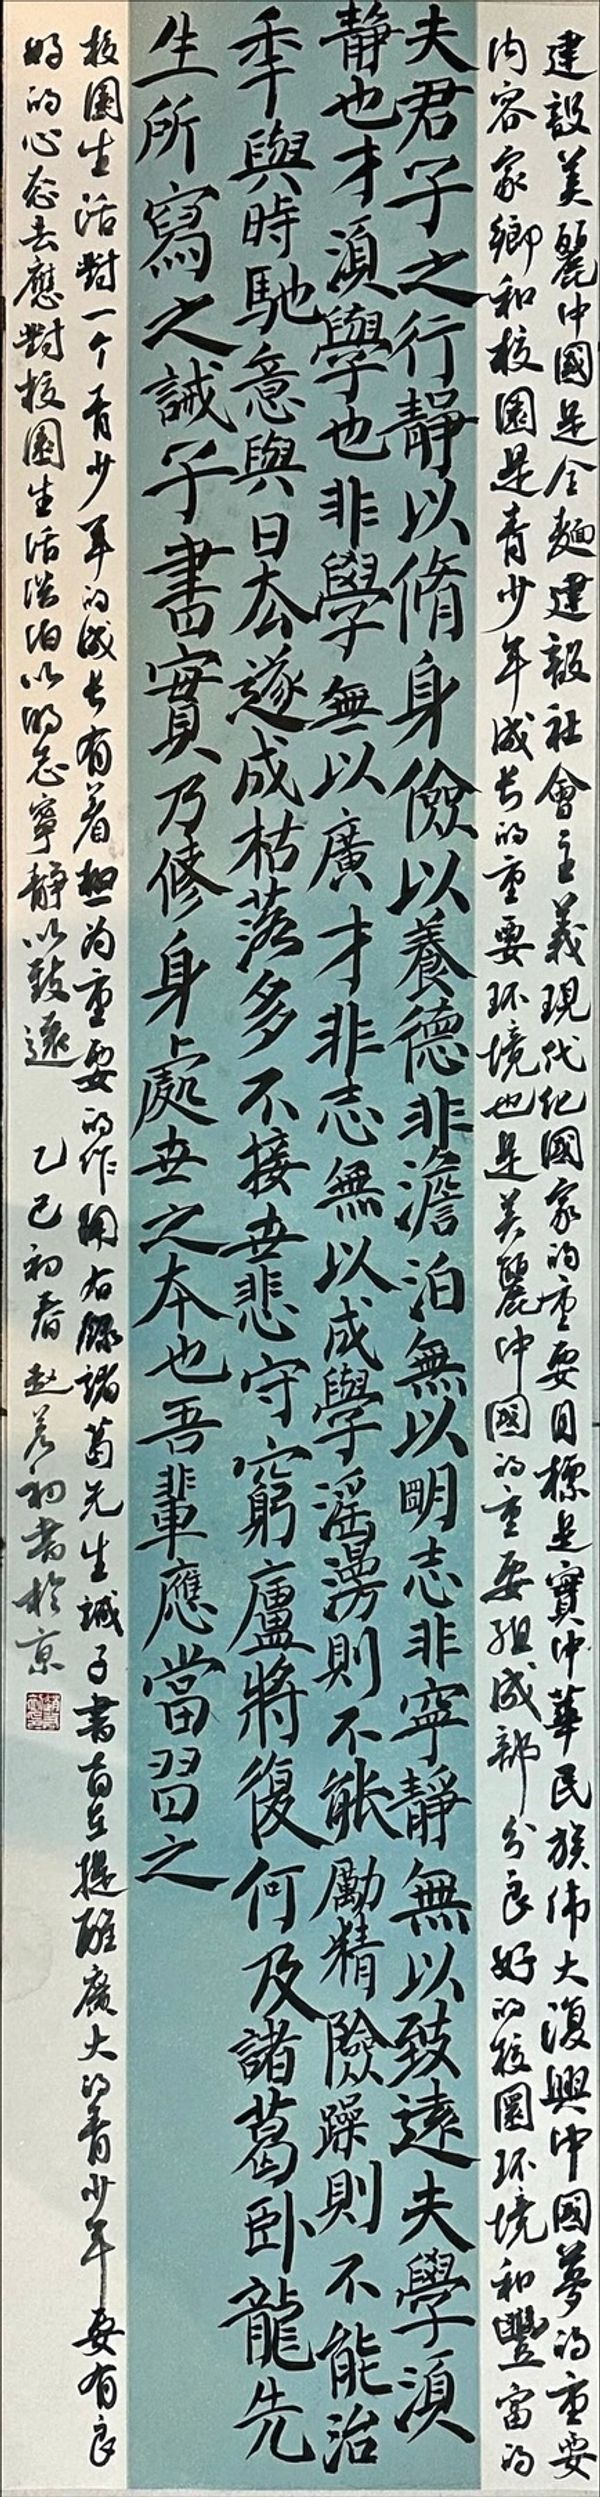 建設美麗中國是全麵建設社會主義現代化國家的重要目標是實中華民族偉大復興中國夢的重要
內容家鄉和校園是青少年成長的重要环境也是美麗中國的重要组成部分良好的校園环境和豐富的
夫君子之行靜以脩身儉以養德非澹泊無以明志非寧靜無以致遠夫學須
靜也才須學也非學無以廣才非志無以成學滛漫則不能勵精險躁則不能治
年與時馳意與日去遂成枯落多不接世悲守窮廬將復何及諸葛卧龍先
生所寫之誡子書實乃修身處世之本也吾輩應當習之
校園生活對一个青少年的成长有着极为重要的作用右錄諸葛先生誡子書旨在提醒廣大的青少年要有良
好的心态去應對校園生活淡泊以明志寧靜以致遠 乙巳初春赵彦初書於京